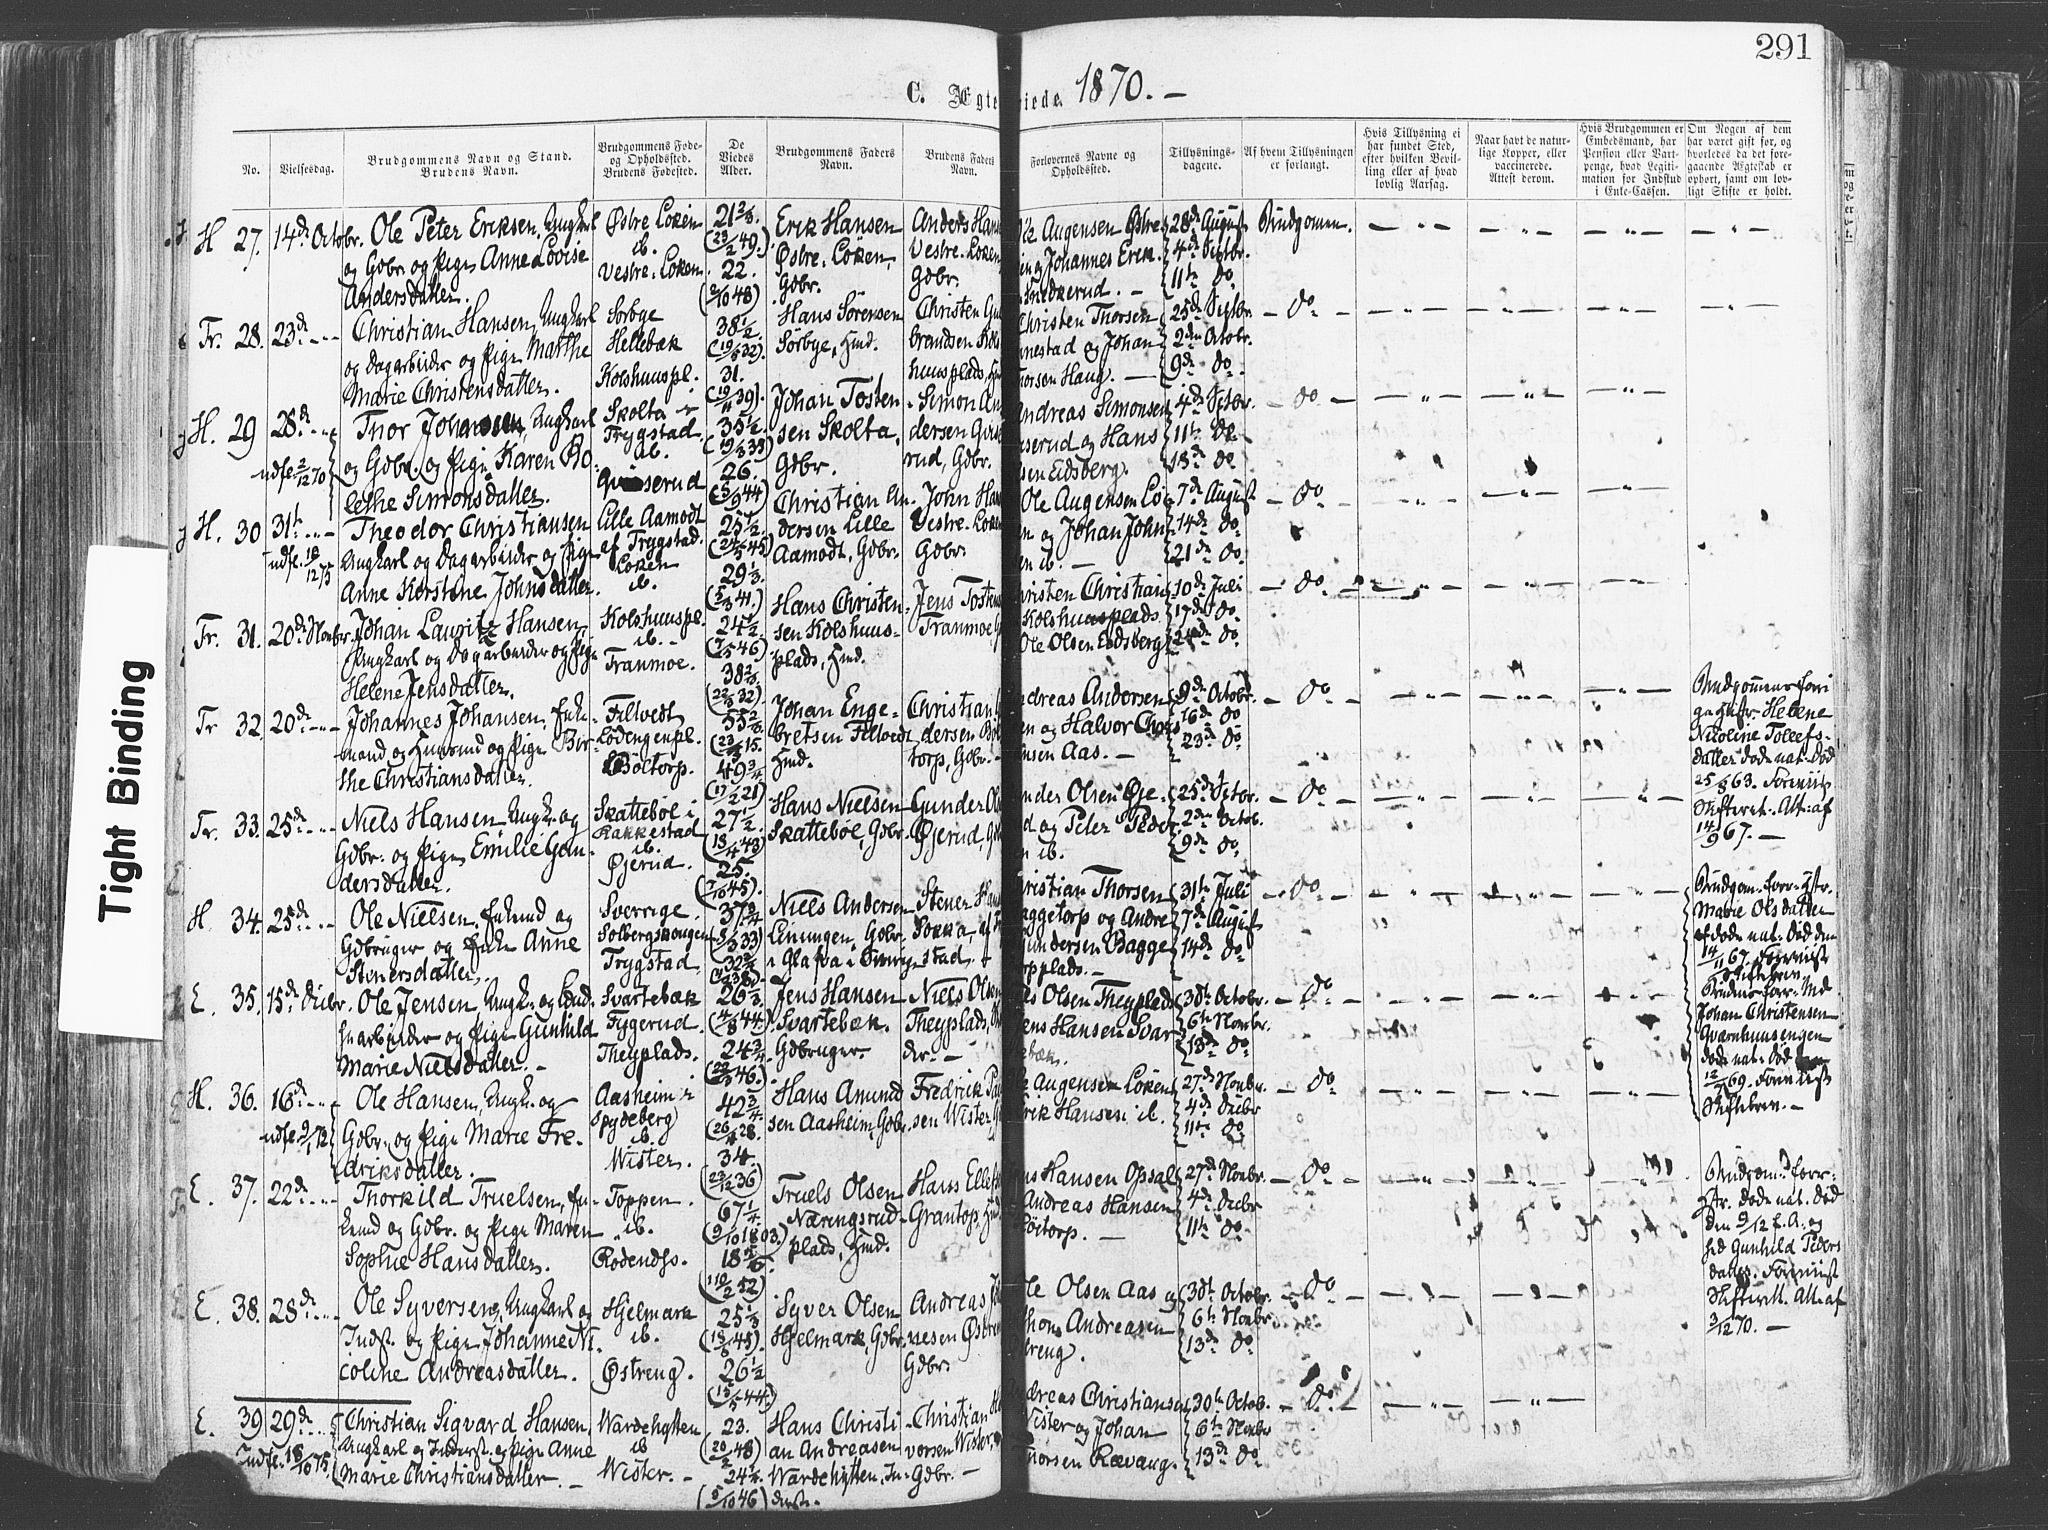 291
C. Ægteviede. 1870. —
No.
Vielsesdag.
Brudgommens Navn og Stand.
Brudens Navn.
Brudgommens Føde-
og Opholdssted.
Brudens Fødested.
De
Viedes
Alder.
Brudgommens Faders
Navn.
Brudens Faders
Navn.
Forlovernes Navne og
Opholdssted.
Tillysnings-
dagene.
Af hvem Tillysningen
er forlangt.
Hvis Tillysning ei
har fundet Sted,
efter hvilken Bevil-
ling eller af hvad
lovlig Aarsag.
Naar havt de natur-
lige Kopper, eller
vaccinerede.
Attest derom.
Hvis Brudgommen er
Embedsmand, har
Pension eller Vart-
penge, hvad Legiti-
mation for Indskud
i Enke-Cassen.
Om Nogen af dem
har været gift før, og
hvorledes da det fore-
gaaende Ægteskab er
ophørt, samt om lov-
ligt Skifte er holdt.
H 27. 14de Octobr.
Ole Peter Eriksen, Ungkarl
og Gdbr. og Pige Anne Lovise
Andersdatter.
Østre Loken
ib.
Vestre Loken.
21 2/3.
(23/2 49.)
22.
(2/10 48)
Erik Hansen
Østre Loken,
Gdbr.
Anders Hans
Vestre Loken
Gdbr.
Augensen Østre
og Johannes Erik
Snedkerud. —
28de August
4de Septbr.
11te do
Brudgommen.
Fr. 28. 23de
Christian Hansen, Ungkarl
og Dagarbeider og Pige Marthe
Marie Christensdatter.
Sorbye
Hellebæk
Kolshuuspl.
38 1/2
(19/5 32).
31.
(19/11 39).
Hans Sørensen
Sorbye, Hmd.
Christen Gul
brandsen Kols
huusplads, Hm
Christen Thorsen
nnestad og Johan
Thorsen Haug. —
25de Septbr
2den Octobr.
9de do
— do —
H. 29 28de
udfr. 2/12 70
Thor Johansen, Ungkarl
og Gdbr. og Pige Karen Bo
lethe Simonsdatter.
Skolta i
Trygstad
ib.
35 1/2
(19/3 33)
26.
(5/9 44)
Johan Tosten
sen Skolta,
Gdbr.
Simon An
dersen
rud, Gdbr.
Andreas Simonsen
serud og Hans
sen Eidsberg.
4de Septbr.
11te do
18de do
— do —
H. 30 31te
udfr. 18/12 75
Theodor Christiansen
Ungkarl og Dagarbeider og Pige
Anne Kerstine Johnsdatter.
Lille Aamodt
af Trygstad.
Loken
ib.
25 1/2
(24/5 45)
29 1/3.
(5/3 41.)
Christian An
dersen Lille
Aamodt, Gdbr.
John Han
Vestre Loken
Gdbr.
Ole Augensen Lø
n og Johan John
en ib. —
7de August
14de do
21de do
— do —
Fr. 31. 20de Novbr.
Johan Lauritz Hansen,
Ungkarl og Dagarbeider og Pige
Helene Jensdatter.
Kolshuuspl.
ib. —
Tranmoe.
24 1/2
(7/5 46)
38 2/3
(22/3 32).
Hans Christen
sen Kolshuus
plads, Hmd.
Jens Tosten
Tranmoe
hristen Christian
Kolshuusplads
Ole Olsen Eidsberg
10de Juli
17de do
24de do
— do —
Fr 32. 20de
Johannes Johansen, Enke
mand og Huusmd og Pige Bir
the Christiansdatter.
Filtvedt
Lodengenpl.
Böltorp.
55 2/3
(23/3 15.
49 3/4
(17/2 21)
Johan Enge
bretsen Filtvedt
Hmd.
Christian
dersen Böl
torp, Gdbr.
ndreas Andersen
en og Halvor Chris
ansen Aas. —
9de Octobr
16de do
23de do
— do —
Brudgommens forri
ge Hstr. Helene
Nicoline Tollefs
datter døde nat. Død
25/8 63. Foreviist
Skifteret. Att. af
14/9 67. —
Fr. 33. 25de
Niels Hansen Ungk. og
Gdbr. og Pige Emilie Gun
dersdatter.
Skattebøl i
Rakkestad
ib.
Øjerud.
27 1/2.
(13/4 43)
25.
(7/10 45).
Hans Nielsen
Skattebøl, Gdbr.
Gunder Ols
Øjerud, Gd
nder Olsen Øje
d og Peter Peder
en ib.
25de Septbr.
2den Octob.
9de do
— do —
H. 34. 25de
Ole Nielsen, Enkemd og
Gdbruger og Enke Anne
Stenersdatter.
Sverrige.
Solbergskougen
Trygstad
37 3/4
Niels Andersen
Lenungen, Gdbr.
i Glafva i Sverige
Stener Hans
Sokka, af
stad.
hristian Thorsen
aggetorp og Andre
Gundersen Bagge
orpplads. —
31te Juli
7de August
14de do
— do —
Brudgom. forr. Hstr.
Marie Olsdatter
døde nat. Død den
14/11 67. Foreviist
Skiftebrev.
Brudens forr. Md
Johan Christensen
Qværnhuusengen
døde nat. Død
12/ 69. Foreviist
Skiftebrev. —
E. 35. 15de Decbr.
Ole Jensen, Ungk. og Gaard
marbeider og Pige Gunhild
Marie Nielsdatter. —
Svartebæk
Fygerud.
Theyplads.
26 1/3
(4/8 44.)
24 3/4
(22/3 46.)
Jens Hansen
Svartebæk.
Gdbruger.
Niels Olsen
Theyplads,
der. —
s Olsen Theyplads
ens Hansen Svar
tebæk.
30te Octobr.
6te Novbr.
13de do
— do —
H. 36. 16de
udfr. 9/1 72
Ole Hansen, Ungk. og
Gdbr. og Pige Marie Fre
driksdatter.
Aasheim i
Spydeberg
ib.
Wister.
42 3/4
34.
(23/12 36)
Hans Amund
sen Aasheim, Gdbr.
Fredrik Pa
sen Wister, G
Augensen Loken
rik Hansen ib.
27de Novbr.
4de Decbr
11te do
— do —
E. 37. 22de
Thorkild Truelsen, En
kemd og Gdbr. og Pige Maren
Sophie Hansdatter.
Toppen.
ib.
Rødends.
67 1/4.
(9/10 1803.)
Truels Olsen
Næringsrud
plads, Hmd.
Hans Ellef
Grantop, Hmd
ns Hansen Opsal
Andreas Hansen
Böltorp. —
27de Novbr
4de Decbr
11te do
— do —
Brudgom. forr.
Hstr. døde nat. Død
den 9/12 f. A. og
hed Gunhild Peders
datter. Foreviist
Skifterett. Att. af
3/12 70. —
E. 38. 28de
Ole Syversen, Ungkarl og
Inds. og Pige Johanne Ni
coline Andreasdatter.
Hjelmark
ib.
Østreng.
25 1/3
26 1/2
(15/5 44.)
Syver Olsen
Hjelmark, Gdbr.
Andreas Jo
nesen Østreng
Gdbr.
le Olsen Aas og
Thom Andreasen
treng.
30te Octobr.
6te Novbr
13de do
— do —
E. 39. 29de
Indfr. 18/10 75
Christian Sigvard Hansen,
Ungkarl og Inderst. og Pige Anne
Marie Christiansdatter. —
Wardehytten
ib
Wister. —
23.
(20/2 48)
24 1/4.
(5/10 46)
Hans Christi
an Andreasen
Wardehytten, In
derst. —
Christian
vorsen Wister,
Gdbr. —
ndreas Christiansen
Wister og Johan
Thorsen Rævaug.
30te Octob.
6te Novbr
13de do
— do —
Tight Binding